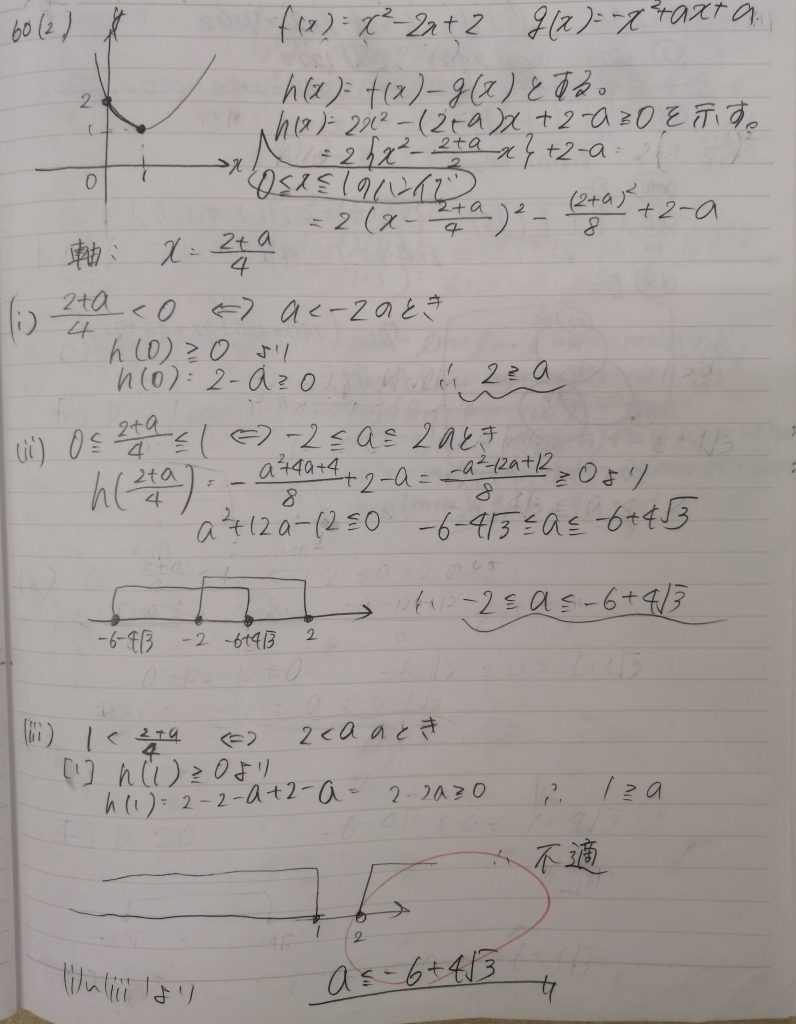 60(2) f(x)=x²-2x+2 g(x)=-x²+ax+a
h(x)=f(x)-g(x)とする。
h(x)=2x²-(2+a)x+2-a≧0を示す。
=2{x²-(2+a)/2 x}+2-a
0≦x≦1において
=2(x-(2+a)/4)²-(2+a)²/8+2-a
2
1
0 1 x
軸: x=(2+a)/4
(i) (2+a)/4<0 ⇔ a<-2のとき
h(0)≧0 より
h(0)=2-a≧0 ∴ 2≧a
(ii) 0≦(2+a)/4≦1 ⇔ -2≦a≦2のとき
h((2+a)/4)=-(a²+4a+4)/8+2-a=(-a²-12a+12)/8≧0より
a²+12a-12≦0 -6-4√3≦a≦-6+4√3
∴ -2≦a≦-6+4√3
-6-4√3 -2 -6+4√3 2
(iii) 1<(2+a)/4 ⇔ 2<aのとき
[1] h(1)≧0より
h(1)=2-2-a+2-a=2-2a≧0 ∴ 1≧a
∴ 不適
1 2
(i)~(iii)より a≦-6+4√3